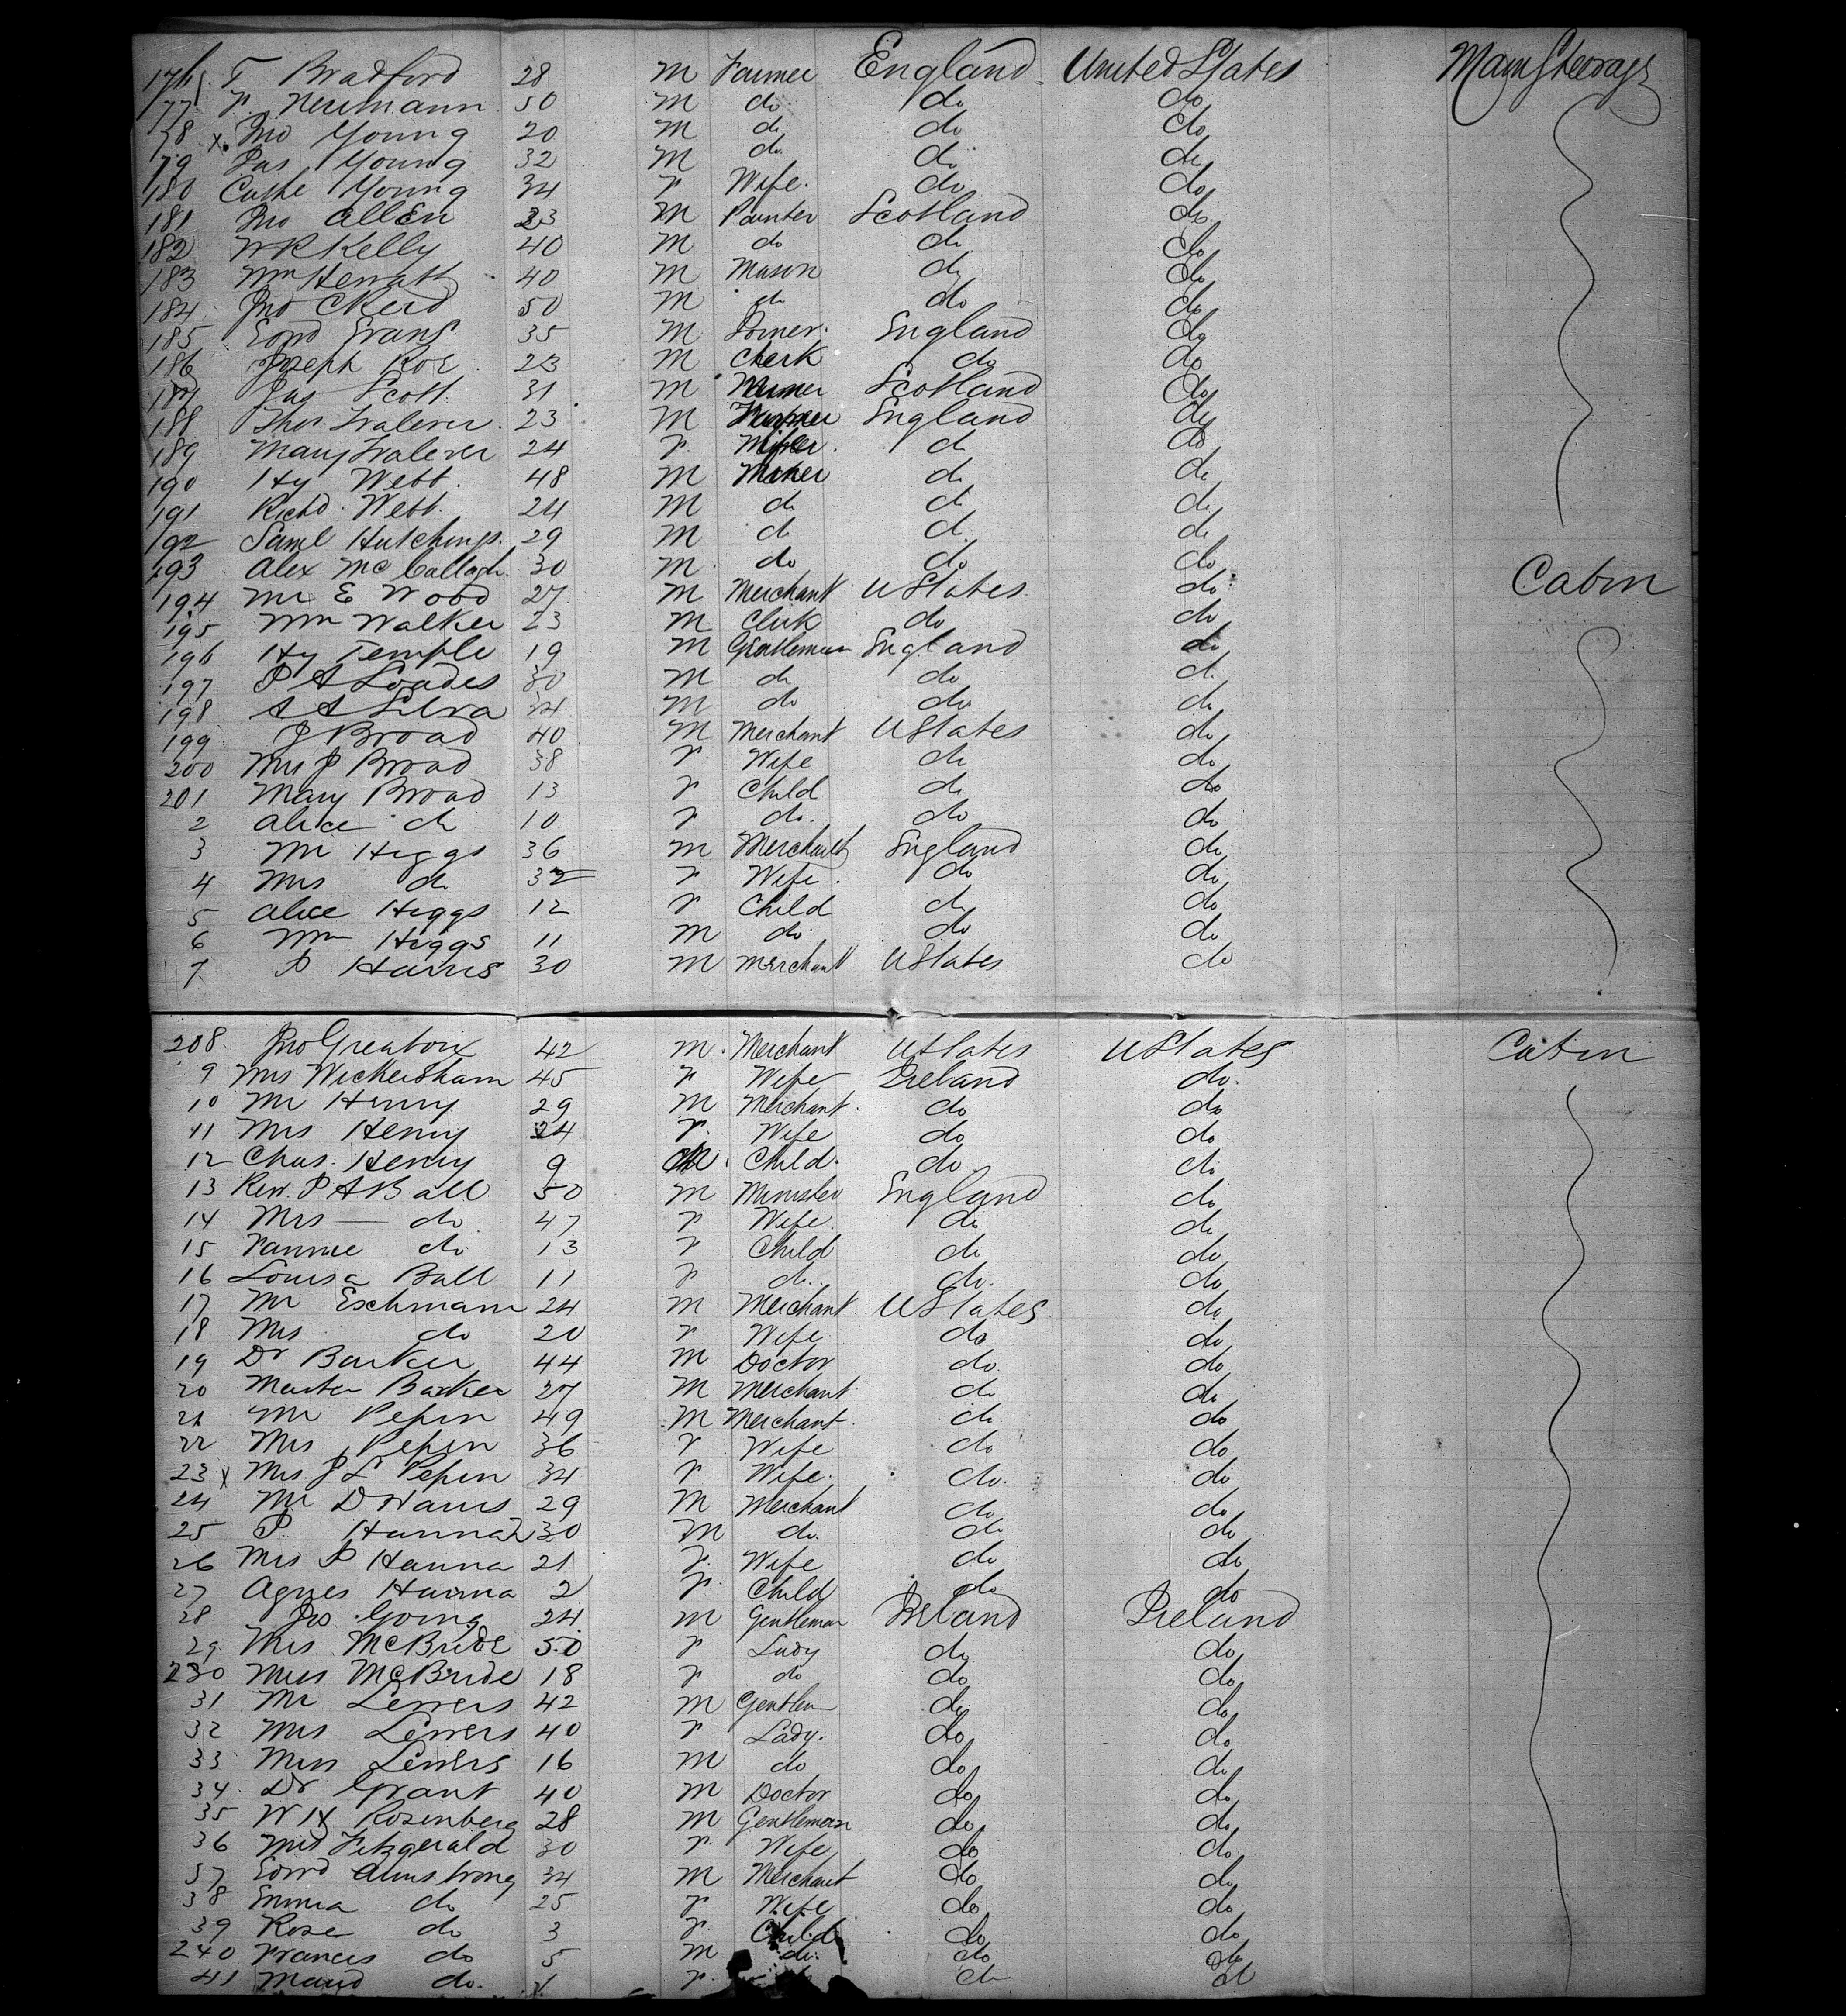 176 T Bradford 28 M Farmer England United States Main Steerage
77 F. Neumann 50 M do do do
78 x Jno Young 20 M do do do
79 Jas Young 32 M do do do
180 Cathe Young 34 F Wife. do do
181 Jno Allen 23 M Painter Scotland do
182 W R Kelly 40 M do do do
183 Wm 40 M Mason do do
184 Jno 50 M do do do
185 Edwd Evans 35 M England do
186 Joseph Roe 23 M Clerk do do
187 Jas Scott 31 M Miner Scotland do
188 Thos. 23 M England do
189 Mary 24 F. do do
190 Hy Webb. 48 M Miner do do
191 Richd. Webb. 24 M do do do
192 Saml Hutchings. 29 M do do do
193 Alex Mc Callagh. 30 M. do do do
194 Mr E Wood 27 M Merchant U States do Cabin
195 Wm Walker 23 M Clerk do do
196 Hy Temple 19 M Gentleman England do
197 P A Loades 30 M do do do
198 A A Silva 34 M do do do
199 J Broad 40 M Merchant U States do
200 Mrs J Broad 38 F Wife do do
201 Mary Broad 13 F Child do do
2 Alice do 10 F do. do do
3 Mr Higgs 36 M Merchant England do
4 Mrs do 32 F Wife. do do
5 Alice Higgs 12 F Child do do
6 Wm Higgs 11 M do do do
7 P Harris 30 M Merchant U States do
208. Jno Greatorix 42 M. Merchant U States U States Cabin
9 Mrs Wickersham 45 F Wife Ireland do.
10 Mr Henry 29 M Merchant. do do
11 Mrs Henry 24 F. Wife do do
12 Chas. Henry 9 M. Child. do do
13 Rev. P A Ball 50 M Minister England do
14 Mrs — do 47 F Wife. do do
15 Fannie do 13 F Child do do
16 Louisa Ball 11 F do. do. do
17 Mr Eschmann 24 M Merchant U States do
18 Mrs do 20 F Wife do do
19 Dr Barker 44 M Doctor do. do
20 Master Barker 27 M Merchant do do
21 Mr Pepin 49 M Merchant. do do
22 Mrs Pepin 36 F Wife do do
23 x Mrs. J L Pepin 34 F Wife. do. do
24 Mr D Harris 29 M Merchant do do
25 P. Hanna 30 M do. do do
26 Mrs P Hanna 21 F. Wife do do
27 Agnes Hanna 2 F. Child do do
28 Jno Going 24 M Gentleman Ireland Ireland
29 Mrs McBride 50 F Lady do do
230 Miss McBride 18 F do do do
31 Mr Lewers 42 M Gentlem do do
32 Mrs Lewers 40 F Lady. do do
33 Miss Lewers 16 M do do do
34. Dr Grant 40 M Doctor do do
35 W H Rosenberg 28 M Gentleman do do
36 Mrs Fitzgerald 30 F. Wife do do
37 Edwd Armstrong 34 M Merchant do do
38 Emma do 25 F Wife do do
39 Rose do 3 F. Child do do
240 Francis do 5 M do. do do
41 Maud do. F. do do